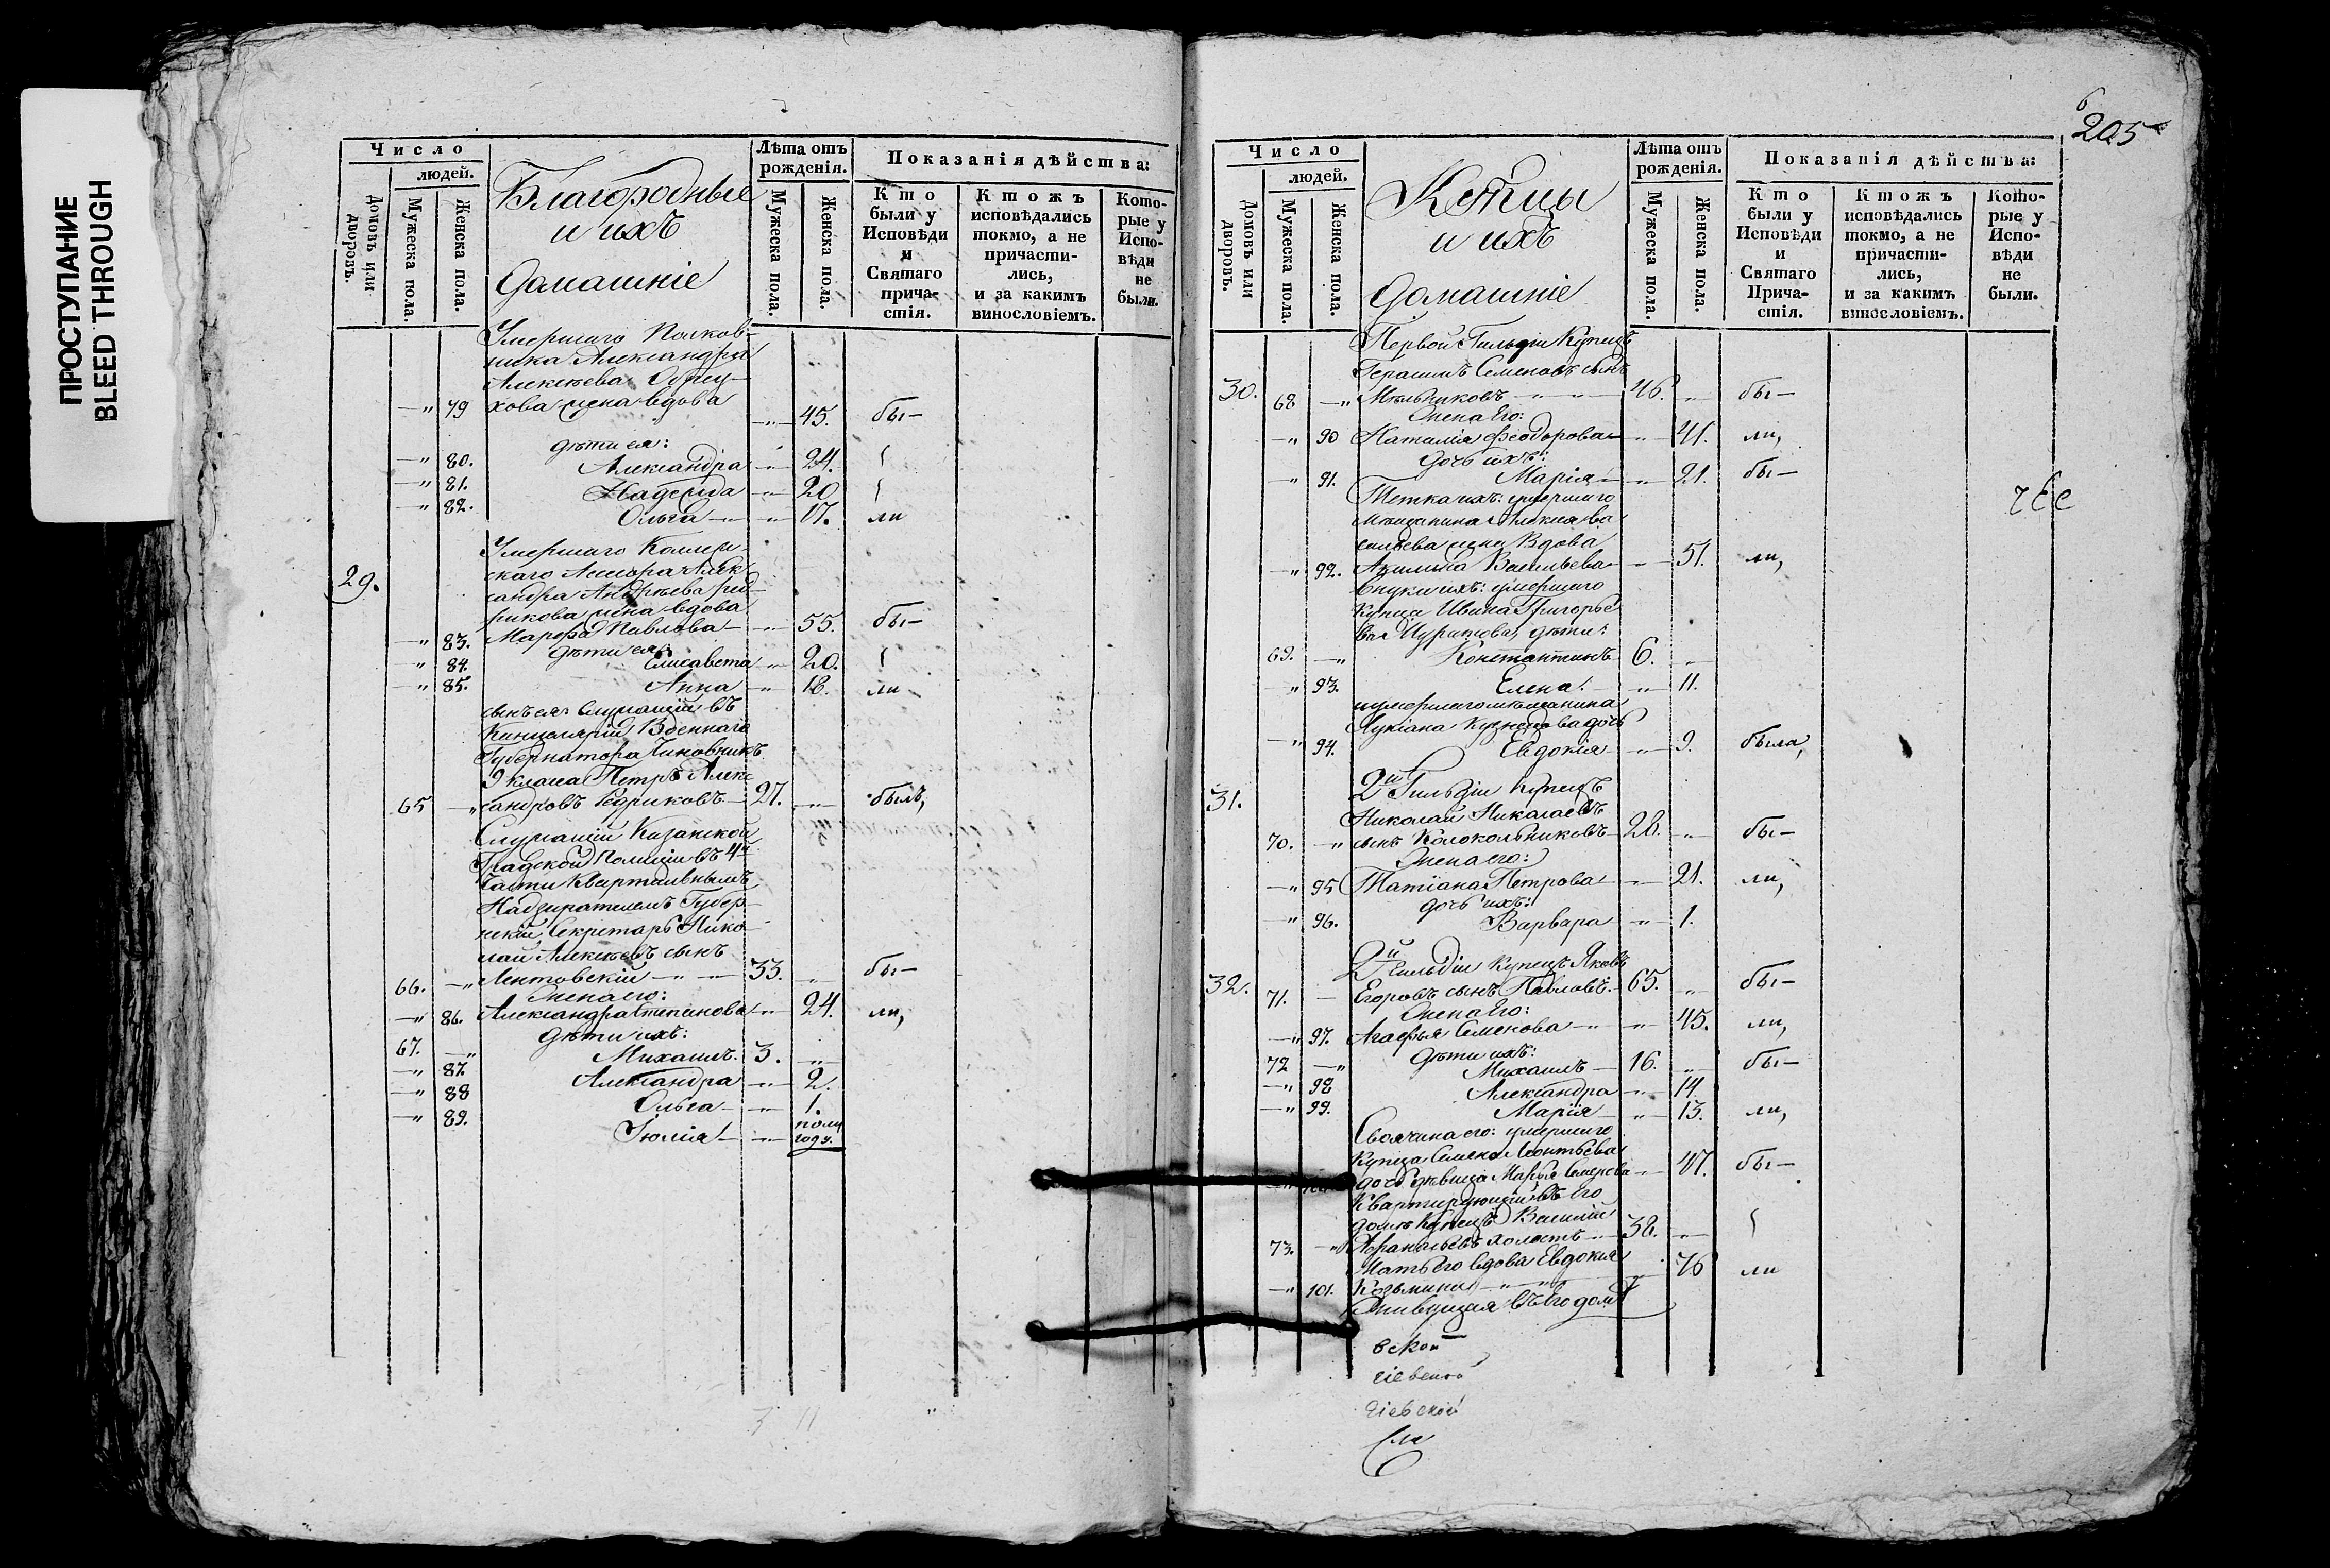 ПРОСТУПАНИЕ
BLEED THROUGH
Число
людей.
Домовъ или дворовъ.
Мужеска пола.
Женска пола.
Благородные
и ихъ
домашніе
Лѣта отъ рожденія.
Мужеска пола.
Женска пола.
Показанія дѣйства:
Кто были у Исповѣди и Святаго причастія.
Ктожъ исповѣдались токмо, а не причастились, и за какимъ винословіемъ.
Которые у Исповѣди не были.
Умершаго Полков-
ника Александра
Алексѣева
—" 79 хова жена вдова —"— 45. бы—
дѣти ея:
—" 80. Александра —"— 24.
—" 81. Надежда —"— 20
—" 82. Ольга —"— 17. ли
29. Умершаго Коллеж-
скаго Асесора Алек-
сандра Андрѣева Ред-
рикова жена вдова
—" 83. Марфа Павлова —"— 55. бы—
дѣти ея:
—" 84. Елисавета —"— 20.
—" 85. Анна —"— 18. ли
сынъ ея служащій въ
Канцеляріи Военнаго
Губернатора Чиновникъ
9 класа Петръ Алек-
65 —" сандровъ Редриковъ — 27. —"— былъ,
Служащій Казанской
Градской Полиціи въ 4й
Части Квартальнымъ
Надзирателемъ Губерн-
скій Секретарь Нико-
лай Алексѣевъ сынъ
66. —" Лентовскій —"— 33. —"— бы—
Жена его:
—" 86. Александра Степанова —"— 24. ли,
дѣти ихъ:
67. —" Михаилъ. 3. —"—
—" 87 Александра —"— 2.
—" 88 Ольга —"— 1.
—" 89. Іюлія —"— полу
году.
205
Число
людей.
Домовъ или дворовъ.
Мужеска пола.
Женска пола.
Купцы
и ихъ
домашніе
Лѣта отъ рожденія.
Мужеска пола.
Женска пола.
Показанія дѣйства:
Кто были у Исповѣди и Святаго Причастія.
Ктожъ исповѣдались токмо, а не причастились, и за какимъ винословіемъ.
Которые у Исповѣди не были.
Первой Гильдіи Купецъ
Герасимъ Семеновъ сынъ
30. 68 —" Мѣльниковъ —"— 46. —"— бы—
Жена Его:
—" 90 Наталія Феодорова —"— 41. ли,
дочь ихъ:
—" 91. Марія —"— 21. бы—
Тетка ихъ: умершаго
мѣщанина Алексѣя Ва
сильева жена Вдова
—" 92. Акилина Васильева —"— 51. ли,
внуки ихъ: умершаго
купца Ивана Григорье
ва дѣти:
69. —" Константинъ 6. —"—
—" 93. Елена. —"— 11.
и умершаго мѣщанина
Лукіана Кузнецова дочь
—" 94. Евдокія —"— 9. была,
31. 2й Гильдіи Купецъ
Николай Николаевъ
70. —" сынъ Колокольниковъ 28. —"— бы—
Жена его:
—" 95 Татіана Петрова —"— 21. ли,
дочь ихъ:
—" 96. Варвара —"— 1.
2й Гильдіи купецъ Яковъ
32. 71. — Егоровъ сынъ Павловъ. 65. —"— бы—
Жена Его:
—" 97. Агафья Семенова —"— 45. ли,
дѣти ихъ:
72 —" Михаилъ — 16. —"— бы—
—" 98 Александра —"— 14.
—" 99. Марія —"— 13. ли,
Своячина его: умершаго
Купца Семена Леонтьева
дочь дѣвица Марья Семенова —"— 47. бы—
Квартирующій въ Его
домѣ Купецъ Василій
73. —" Афанасьевъ холостъ — 38. —"—
Мать Его вдова Евдокія
—" 101. Козьмина —"— 76 ли
Живущая въ Его домѣ